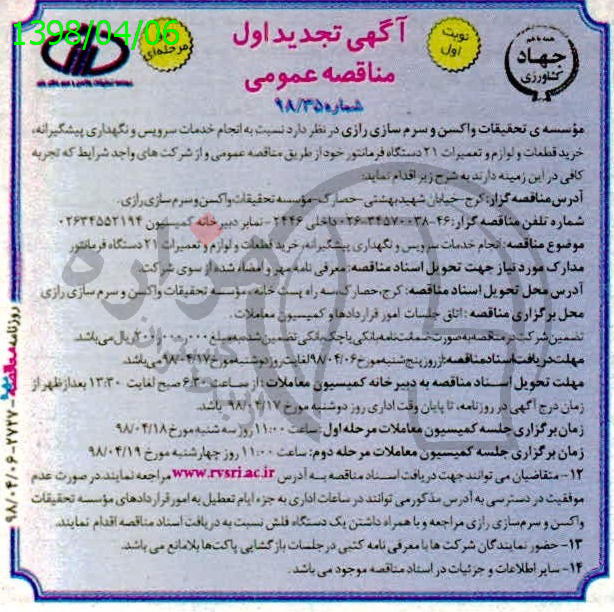 1398/04/06
مرحله‌ای
آگهی تجدید اول
مناقصه عمومی
شماره ۹۸/۳۵
نوبت اول
همه با هم
جهاد
کشاورزی
مؤسسه‌ی تحقیقات واکسن و سرم سازی رازی در نظر دارد نسبت به انجام خدمات سرویس و نگهداری پیشگیرانه،
خرید قطعات و لوازم و تعمیرات ۲۱ دستگاه فرمانتور خود از طریق مناقصه عمومی و از شرکت های واجد شرایط که تجربه
کافی در این زمینه دارند به شرح زیر اقدام نماید:
آدرس مناقصه گزار: کرج-خیابان شهید بهشتی-حصارک-مؤسسه تحقیقات واکسن و سرم سازی رازی.
شماره تلفن مناقصه گزار: ۴۶-۰۲۶-۳۴۵۷۰۰۳۸ داخلی ۲۴۴۶ - نمابر دبیرخانه کمیسیون ۰۲۶۳۴۵۵۲۱۹۴
موضوع مناقصه: انجام خدمات سرویس و نگهداری پیشگیرانه، خرید قطعات و لوازم و تعمیرات ۲۱ دستگاه فرمانتور
مدارک مورد نیاز جهت تحویل اسناد مناقصه: معرفی نامه مهر و امضاء شده از سوی شرکت.
آدرس محل تحویل اسناد مناقصه: کرج، حصارک، سه راه پست خانه، مؤسسه تحقیقات واکسن و سرم سازی رازی
محل برگزاری مناقصه: اتاق جلسات امور قراردادها و کمیسیون معاملات.
تضمین شرکت در مناقصه به صورت ضمانت نامه بانکی یا چک بانکی تضمین شده به مبلغ ریال می‌باشد.
مهلت دریافت اسناد مناقصه: از روز پنج شنبه مورخ ۹۸/۰۴/۰۶ لغایت روز دوشنبه مورخ ۹۸/۰۴/۱۷ می‌باشد.
مهلت تحویل اسناد مناقصه به دبیرخانه کمیسیون معاملات: از ساعت ۶:۳۰ صبح لغایت ۱۳:۳۰ بعد از ظهر از
زمان درج آگهی در روزنامه، تا پایان وقت اداری روز دوشنبه مورخ ۹۸/۰۴/۱۷ باشد.
زمان برگزاری جلسه کمیسیون معاملات مرحله اول: ساعت ۱۱:۰۰ روز سه شنبه مورخ ۹۸/۰۴/۱۸
زمان برگزاری جلسه کمیسیون معاملات مرحله دوم: ساعت ۱۱:۰۰ روز چهارشنبه مورخ ۹۸/۰۴/۱۹
۱۲- متقاضیان می توانند جهت دریافت اسناد مناقصه به آدرس www.rvsri.ac.ir مراجعه نمایند. در صورت عدم
موفقیت در دسترسی به آدرس مذکور می توانند در ساعات اداری به جز ایام تعطیل به امور قراردادهای مؤسسه تحقیقات
واکسن و سرم سازی رازی مراجعه و با همراه داشتن یک دستگاه فلش نسبت به دریافت اسناد مناقصه اقدام نمایند.
۱۳- حضور نمایندگان شرکت ها با معرفی نامه کتبی در جلسات بازگشایی پاکت‌ها بلامانع می باشد.
۱۴- سایر اطلاعات و جزئیات در اسناد مناقصه موجود می باشد.
روزنامه مناقصه ۲۷۲۷-۹۸/۰۴/۰۶